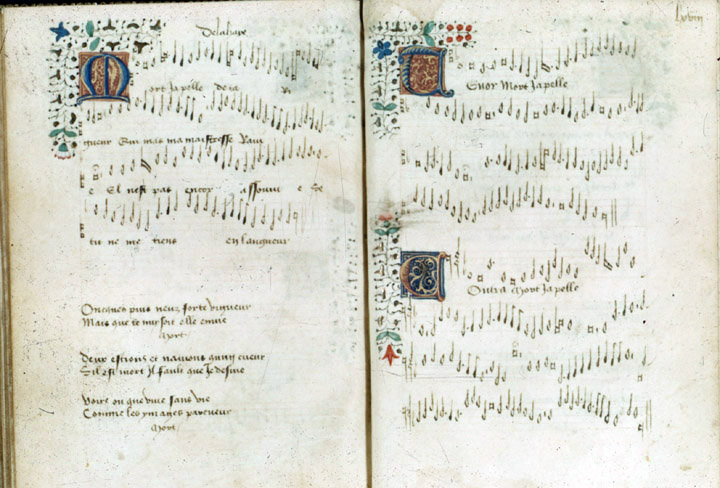 Delahaye
Mort Japelle de ta Ri
gueur Qui mas ma maistresse Ravi
e Et nest pas encor assouuie Se
tu ne me tiens en langueur
Oncques puis neuz force vigueur
Mais que te nuysoit elle en vie
Mort
Deux estions et nauions quung cueur
Sil est mort Il fault que Je deuie
Voire ou que viue sans vie
Comme les ymages par cueur
Mort
lxviii
Tenor Mort Japelle
Contra Mort Japelle